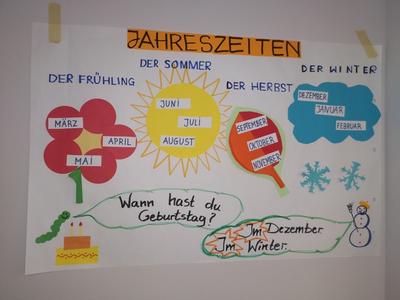 JAHRESZEITEN
DER FRÜHLING
MÄRZ
APRIL
MAI
DER SOMMER
JUNI
JULI
AUGUST
DER HERBST
SEPTEMBER
OKTOBER
NOVEMBER
DER WINTER
DEZEMBER
JANUAR
FEBRUAR
Wann hast du
Geburtstag?
Im Dezember
Im Winter.